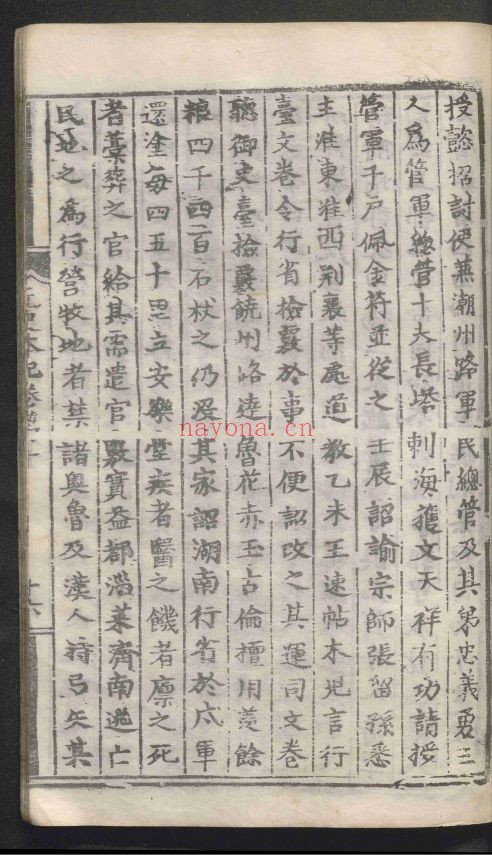 授懿招討使兼潮州路軍民總管及其弟忠義勇三
人為管軍總管十夫長塔剌海獲文天祥有功請授
管軍千戶佩金符並從之壬辰詔諭宗師張留孫悉
主淮東淮西荊襄等處道教乙未王速帖木兒言行
臺文卷令行省檢覈於事不便詔改之其運司文卷
聽御史臺檢覈饒州路達魯花赤玉古倫擅用羨餘
粮四千四百石杖之仍沒其家詔湖南行省於戍軍
還塗每四五十里立安樂堂疾者醫之饑者廩之死
者藁葬之官給其需遣官覈實益都淄萊濟南逃亡
民地之為行營牧地者禁諸奧魯及漢人持弓矢其
nayona.cn